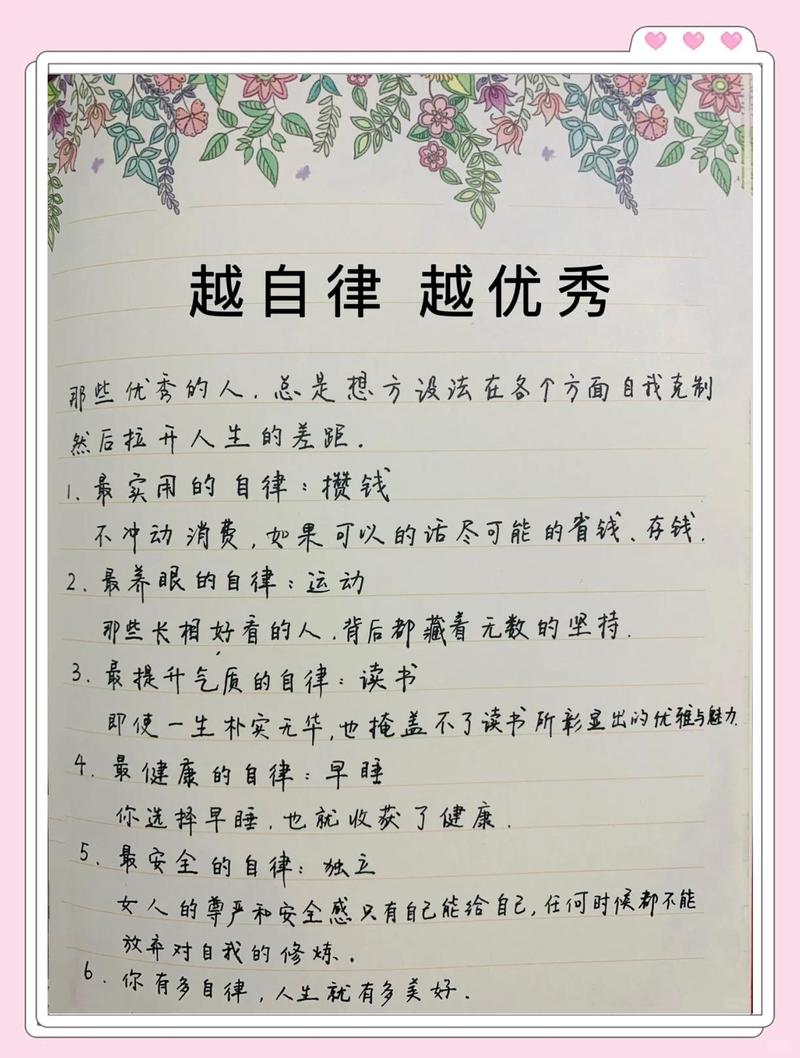 越自律 越优秀
那些优秀的人，总是想方设法在各个方面自我克制
然后拉开人生的差距.
1. 最实用的自律：攒钱
不冲动消费,如果可以的话尽可能的省钱、存钱.
2. 最养眼的自律：运动
那些长相好看的人,背后都藏着无数的坚持.
3. 最提升气质的自律：读书
即使一生朴实无华,也掩盖不了读书所彰显出的优雅与魅力.
4. 最健康的自律：早睡
你选择早睡,也就收获了健康.
5. 最安全的自律：独立
女人的尊严和安全感只有自己能给自己,任何时候都不能
放弃对自我的修炼.
6. 你有多自律,人生就有多美好.